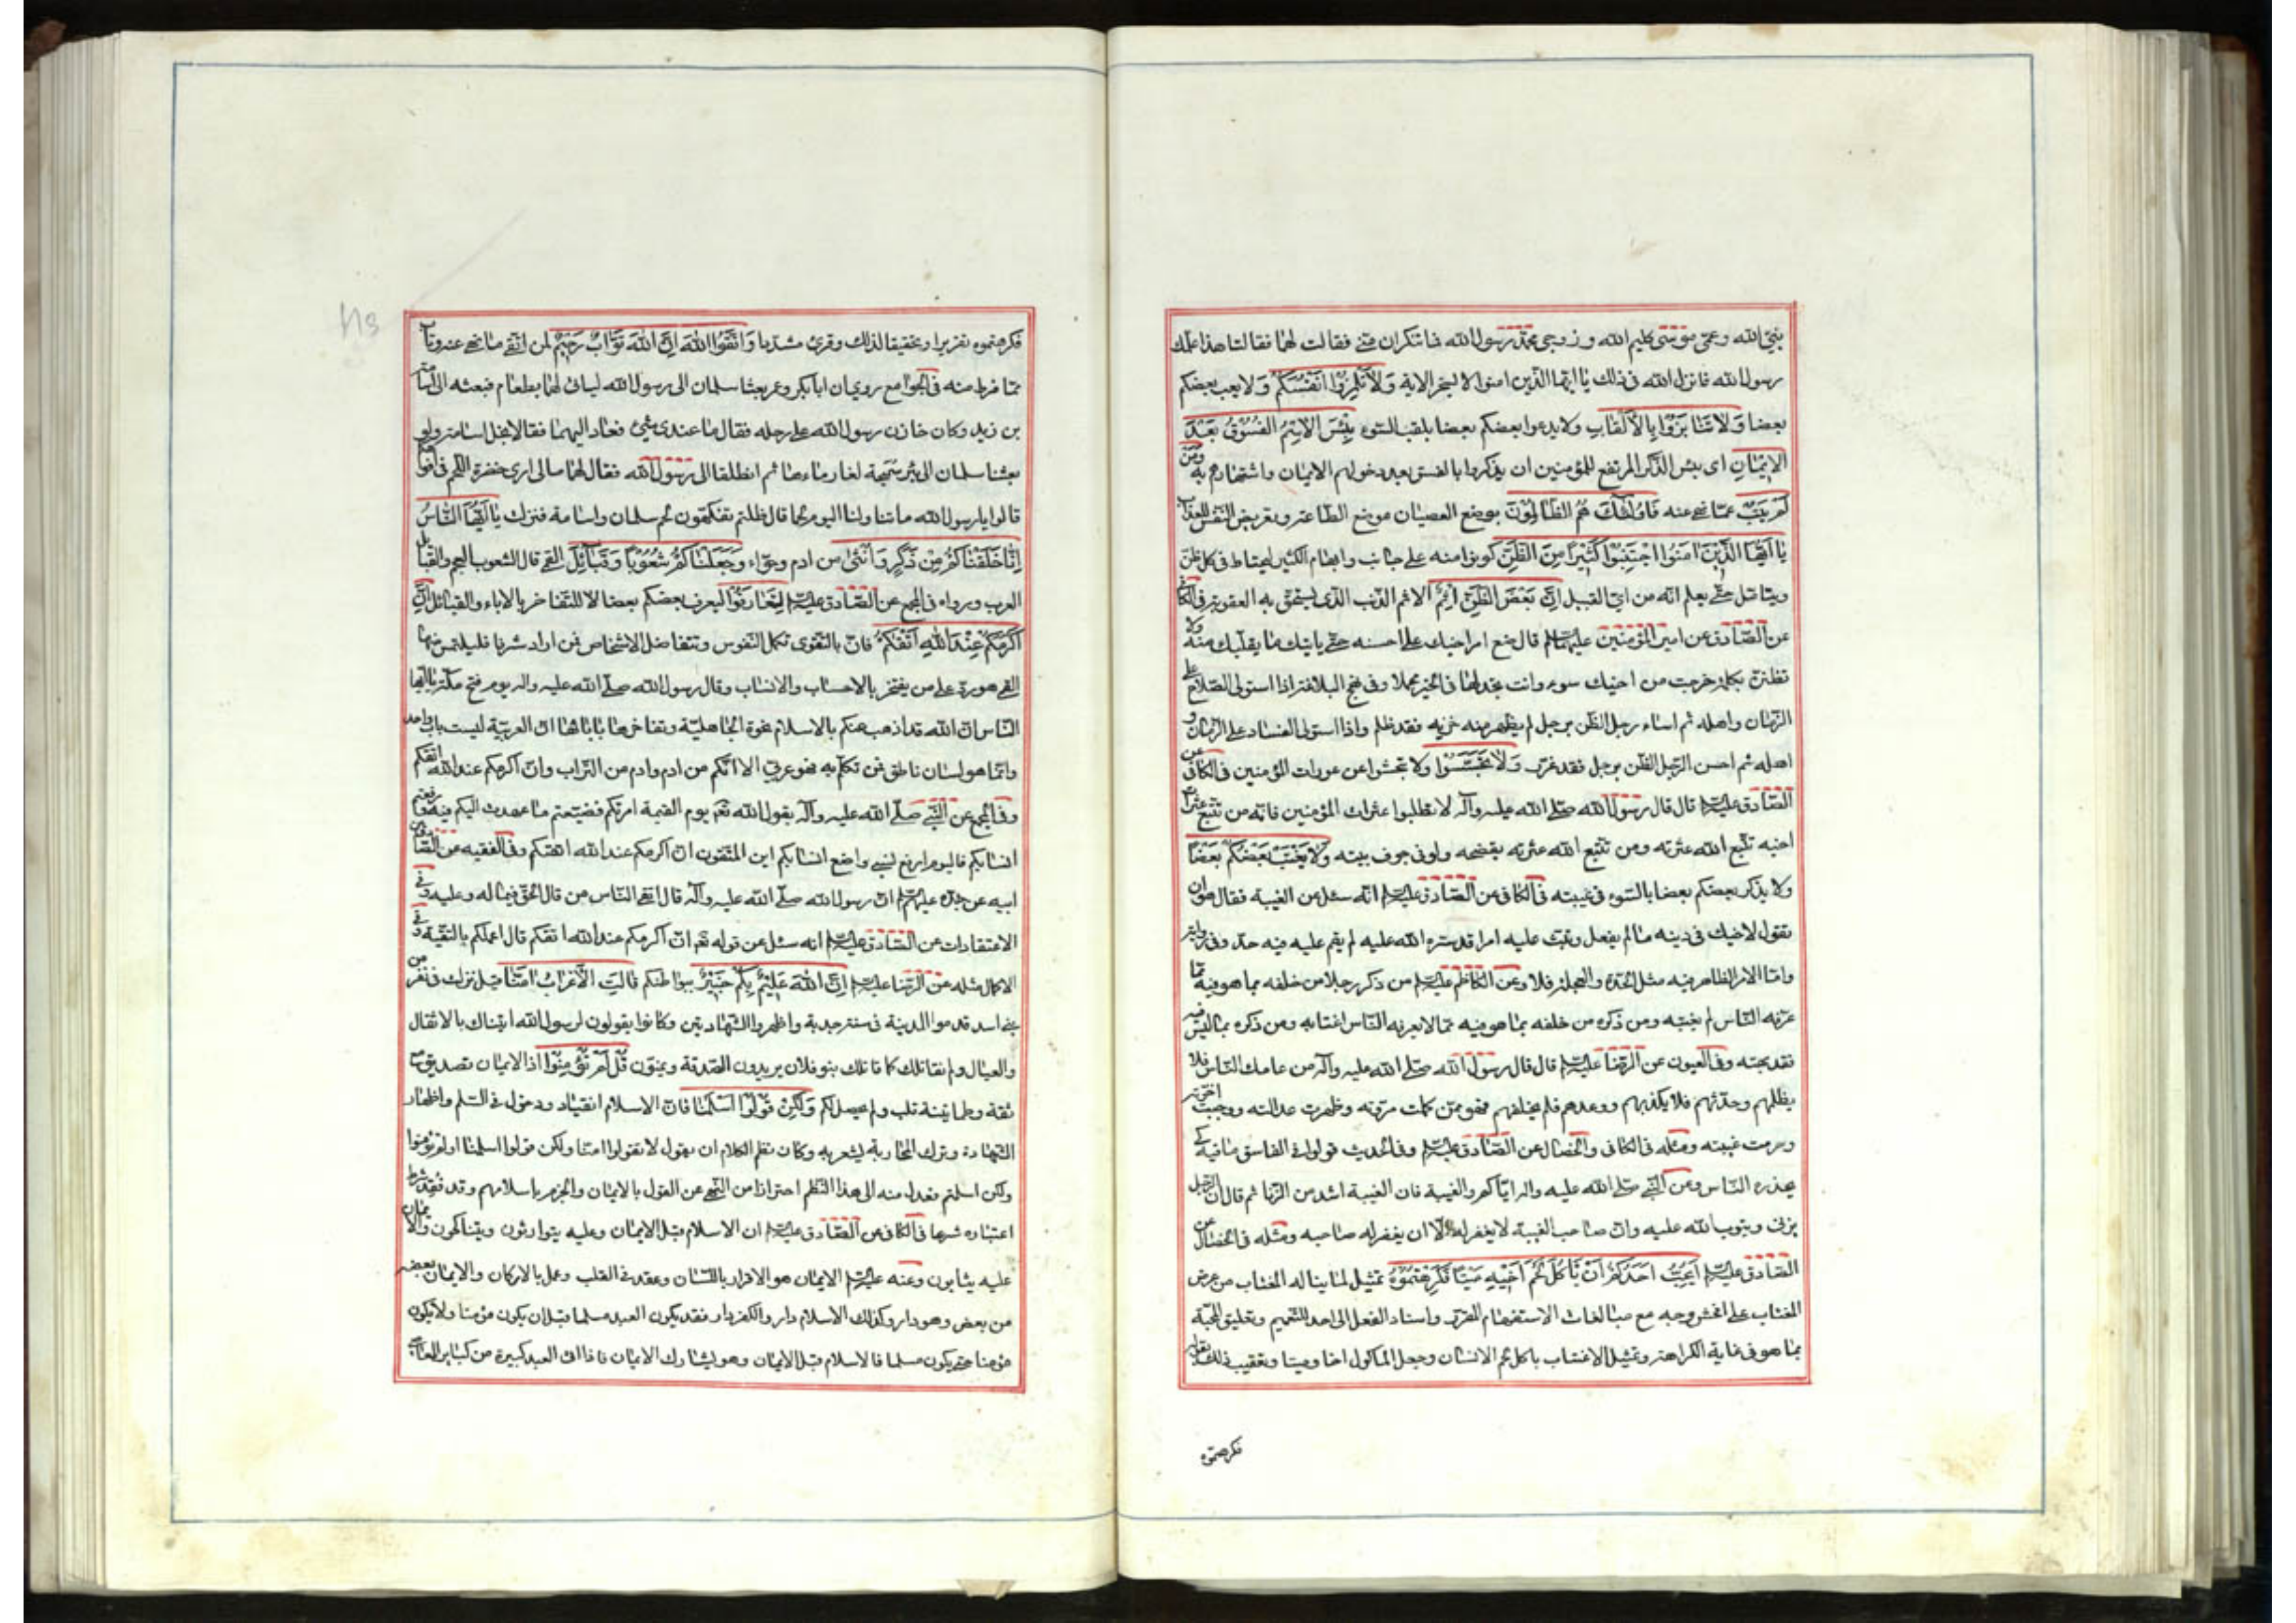 بنيّ الله وعمّي موسى كليم الله وزوجي محمّد رسول الله فما تنكران منّي فقالت لهما فقالتا هذا علّمك
رسول الله فانزل الله في ذلك يا ايّها الذين امنوا لا يسخر الاية وَلاٰ تَلْمِزُوا اَنْفُسَكُمْ ولا يعب بعضكم
بعضا وَلاٰ تَنٰابَزُوا بِالْاَلْقٰابِ ولا يدعوا بعضكم بعضا بلقب السّوء بِئْسَ الاِسْمُ الفُسُوقُ بَعْدَ
الْاِيمٰانِ اى بئس الذّكر المرتفع للمؤمنين ان يذكروا بالفسق بعد دخولهم الايمان واشتهارهم به وَمَنْ
لَمْ يَتُبْ عمّا نهي عنه فَاُولٰئِكَ هُمُ الظّٰالِمُونَ بوضع العصيان موضع الطّاعة وتعريض النّفس للعذاب
يٰا اَيُّهَا الَّذِينَ اٰمَنُوا اجْتَنِبُوا كَثِيرًا مِنَ الظَّنِّ كونوا منه على جانب وابهام الكثير ليحتاط في كل ظنّ
ويتامّل حتّى يعلم انّه من اىّ القبيل اِنَّ بَعْضَ الظَّنِّ اِثْمٌ الاثم الذّنب الذى يستحق به العقوبة في الكافي
عن الصّادق عن امير المؤمنين عليهما السلم قال ضع امر اخيك على احسنه حتّى ياتيك ما يقلّبك منه ولا
تظننّ بكلمة خرجت من اخيك سوء وانت تجد لها في الخير محملا وفي نهج البلاغة اذا استولى الصّلاح على
الزّمان واهله ثم اساء رجل الظّن برجل لم يظهر منه خزية فقد ظلم واذا استولى الفساد على الزّمان و
اهله ثم احسن الرّجل الظّن برجل فقد غرّر وَلاٰ تَجَسَّسُوا ولا تبحثوا عن عورات المؤمنين في الكافي عن
الصّادق عليه السلم قال قال رسول الله صلّى الله عليه وآله لا تطلبوا عثرات المؤمنين فانّه من تتبّع عثرات
اخيه تتبّع الله عثرته ومن تتبّع الله عثرته يفضحه ولو في جوف بيته وَلاٰ يَغْتَبْ بَعْضُكُمْ بَعْضًا
ولا يذكر بعضكم بعضا بالسّوء في غيبته في الكافي عن الصّادق عليه السلم انّه سئل عن الغيبة فقال هو ان
تقول لاخيك في دينه ما لم يفعل وتبث عليه امرا قد ستره الله عليه لم يقم عليه فيه حدّ وفي رواية
وامّا الامر الظّاهر فيه مثل الحدّة والعجلة فلا وعن الكاظم عليه السلم من ذكر رجلا من خلفه بما هو فيه ممّا
عرفه النّاس لم يغتبه ومن ذكره من خلفه بما هو فيه ممّا لا يعرفه النّاس اغتابه ومن ذكره بما ليس فيه
فقد بهته وفي العيون عن الرّضا عليه السلم قال قال رسول الله صلّى الله عليه وآله من عامل النّاس فلم
يظلمهم وحدّثهم فلا يكذبهم ووعدهم فلم يخلفهم فهو ممّن كملت مروّته وظهرت عدالته ووجبت اخوّته
وحرمت غيبته ومثله في الكافي والخصال عن الصّادق عليه السلم وفي الحديث قولوا في الفاسق ما فيه كي
يحذره النّاس وعن النّبي صلّى الله عليه واله ايّاكم والغيبة فان الغيبة اشد من الزّنا ثم قال ان الرّجل
يزنى ويتوب الله عليه وان صاحب الغيبة لا يغفر له الّا ان يغفر له صاحبه ومثله في الخصال عن
الصّادق عليه السلم اَيُحِبُّ اَحَدُكُمْ اَنْ يَأْكُلَ لَحْمَ اَخِيهِ مَيْتًا فَكَرِهْتُمُوهُ تمثيل لما يناله المغتاب من عرض
المغتاب على افحش وجه مع مبالغات الاستفهام المقرّر واسناد الفعل الى احد للتّعميم وتعليق المحبّة
بما هو في غاية الكراهة وتمثيل الاغتياب باكل لحم الانسان وجعل الماكول اخا وميتا وتعقيب ذلك بقوله
فكرهتموه
فكرهتموه تقريرا وتحقيقا لذلك وقرئ مشدّدا وَاتَّقُوا اللهَ اِنَّ اللهَ تَوّٰابٌ رَحِيمٌ لمن اتّقى ما نهي عنه وتاب
ممّا فرط منه في الجوامع روي ان ابابكر وعمر بعثا سلمان الى رسول الله لياتي لهما بطعام فبعثه الى اسامة
بن زيد وكان خازن رسول الله على رحله فقال ما عندى شئ فعاد اليهما فقالا بخل اسامة ولو
بعثنا سلمان الى بئر سميحة لغار ماءها ثم انطلقا الى رسول الله فقال لهما ما لى ارى خضرة اللّحم في افواهكما
قالوا يا رسول الله ما تناولنا اليوم لحما قال ظلتم تفكهون لحم سلمان واسامة فنزلت يٰا اَيُّهَا النّٰاسُ
اِنّٰا خَلَقْنٰاكُمْ مِنْ ذَكَرٍ وَاُنْثىٰ من ادم وحوّاء وَجَعَلْنٰاكُمْ شُعُوبًا وَقَبٰائِلَ القمي قال الشعوب العجم والقبائل
العرب ورواه في المجمع عن الصّادق عليه السلم لِتَعٰارَفُوا ليعرف بعضكم بعضا لا للتّفاخر بالاباء والقبائل اِنَّ
اَكْرَمَكُمْ عِنْدَ اللهِ اَتْقٰكُمْ فانّ بالتّقوى تكمل النّفوس وتتفاضل الاشخاص فمن اراد شرفا فليلتمس منها
القمي هو ردّ على من يفتخر بالاحساب والانساب وقال رسول الله صلّى الله عليه واله يوم فتح مكّة يا ايّها
النّاس انّ الله قد اذهب عنكم بالاسلام نخوة الجاهليّة وتفاخرها بابائها انّ العربيّة ليست باب واحد
وانّما هو لسان ناطق فمن تكلّم به فهو عربي الا انّكم من ادم وادم من التّراب وانّ اكرمكم عند الله اتقكم
وفي المجمع عن النّبي صلّى الله عليه وآله يقول الله تع يوم القيمة امرتكم فضيّعتم ما عهدت اليكم فيه ورفعتم
انسابكم فاليوم ارفع نسبي واضع انسابكم اين المتّقون انّ اكرمكم عند الله اتقكم وفي الفقيه عن الصّادق عن
ابيه عن جدّه عليهم السلم انّ رسول الله صلّى الله عليه وآله قال اتقى النّاس من قال الحقّ فيما له وعليه وفي
الاعتقادات عن الصّادق عليه السلم انه سئل عن قوله تع انّ اكرمكم عند الله اتقكم قال اعملكم بالتّقية وفي
الاكمال مثله عن الرّضا عليه السلم اِنَّ اللهَ عَلِيمٌ بكم خَبِيرٌ ببواطنكم قٰالَتِ الْاَعْرٰابُ اٰمَنّٰا قيل نزلت في نفر من
بني اسد قدموا المدينة في سنة جدبة واظهروا الشّهادتين وكانوا يقولون لرسول الله اتيناك بالاثقال
والعيال ولم نقاتلك كما قاتلك بنو فلان يريدون الصّدقة ويمنّون قُلْ لَمْ تُؤْمِنُوا اذ الايمان تصديق مع
ثقة وطمانينة قلب ولم يحصل لكم وَلٰكِنْ قُولُوا اَسْلَمْنٰا فانّ الاسلام انقياد ودخول في السّلم واظهار
الشّهادة وترك المحاربة يشعر به وكان نظم الكلام ان يقول لا تقولوا امنّا ولكن قولوا اسلمنا او لم تؤمنوا
ولكن اسلمتم فعدل منه الى هذا النّظم احترازا من النّهي عن القول بالايمان والجزم باسلامهم وقد فقد شرط
اعتباره شرعا في الكافي عن الصّادق عليه السلم ان الاسلام قبل الايمان وعليه يتوارثون ويتناكحون والايمان
عليه يثابون وعنه عليه السلم الايمان هو الاقرار باللّسان وعقد في القلب وعمل بالاركان والايمان بعضه
من بعض وهو دار وكذلك الاسلام دار والكفر دار فقد يكون العبد مسلما قبل ان يكون مؤمنا ولا يكون
مؤمنا حتى يكون مسلما فالاسلام قبل الايمان وهو يشارك الايمان فاذا اتى العبد كبيرة من كبائر المعاصي